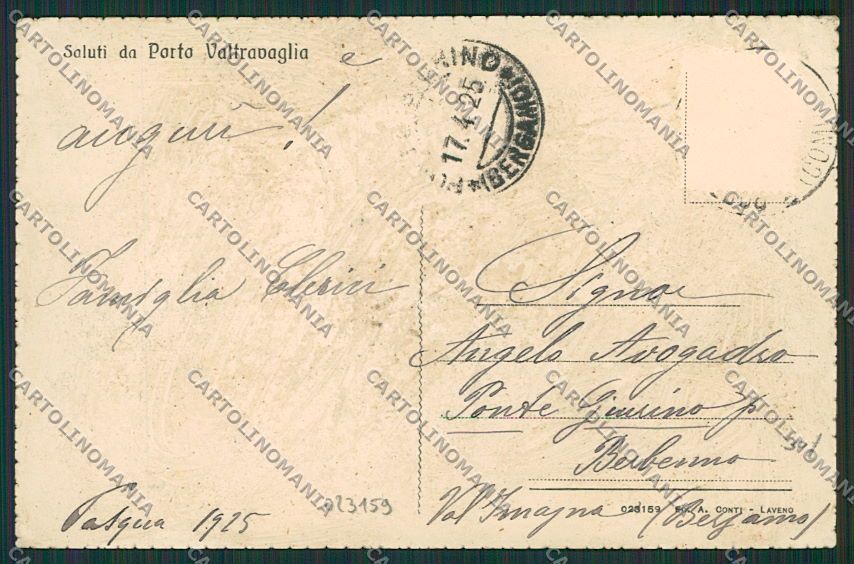 Saluti da Porto Valtravaglia e
auguri!
Famiglia Clerici
Pasqua 1925
023159
17.4.25
(BERGAMO)
Signor
Angelo Avogadro
Ponte Giurino p
Berbenno
Val Imagna (Bergamo)
023159 Fot. A. CONTI - LAVENO
CARTOLINOMANIA